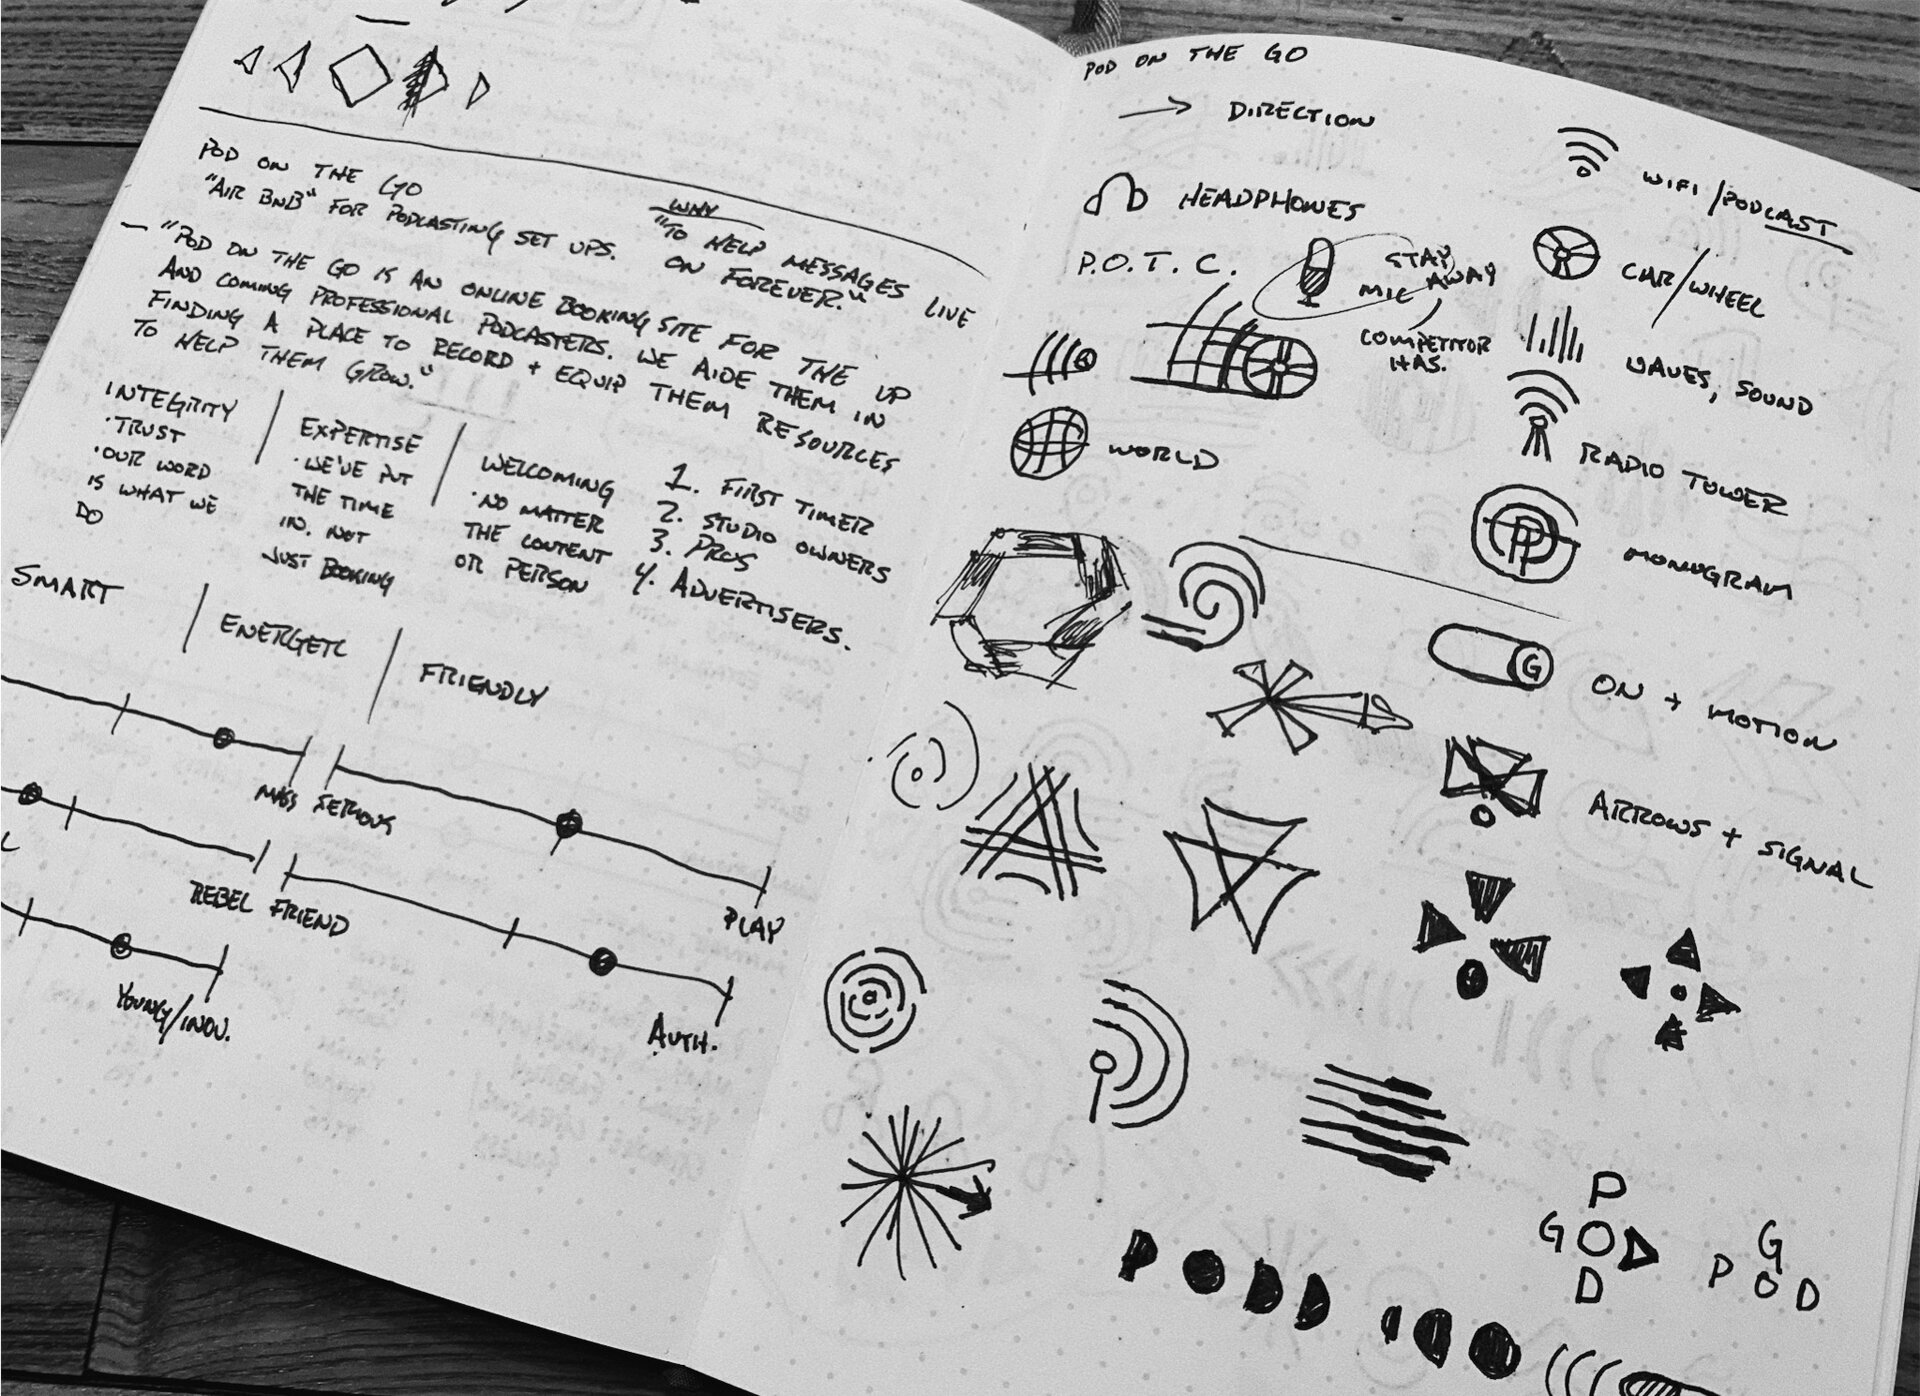 POD ON THE GO
"AIR BNB" FOR PODCASTING SET UPS.
WHY
"TO HELP MESSAGES LIVE
ON FOREVER."
— "POD ON THE GO IS AN ONLINE BOOKING SITE FOR THE UP
AND COMING PROFESSIONAL PODCASTERS. WE AIDE THEM IN
FINDING A PLACE TO RECORD + EQUIP THEM RESOURCES
TO HELP THEM GROW."
INTEGRITY
· TRUST
· OUR WORD
IS WHAT WE
DO
EXPERTISE
· WE'VE PUT
THE TIME
IN. NOT
JUST BOOKING
WELCOMING
· NO MATTER
THE CONTENT
OR PERSON
1. FIRST TIMER
2. STUDIO OWNERS
3. PROS
4. ADVERTISERS.
SMART
ENERGETC
FRIENDLY
MASS
SERIOUS
PLAY
REBEL
FRIEND
AUTH.
YOUNG/INOV.
POD ON THE GO
→ DIRECTION
HEADPHONES
P.O.T.C.
STAY
AWAY
MIC
COMPETITOR
HAS.
WORLD
WIFI/PODCAST
CAR/WHEEL
WAVES, SOUND
RADIO TOWER
P
MONOGRAM
G
ON + MOTION
ARROWS + SIGNAL
P
G O D
D
G
P O D
P O D D